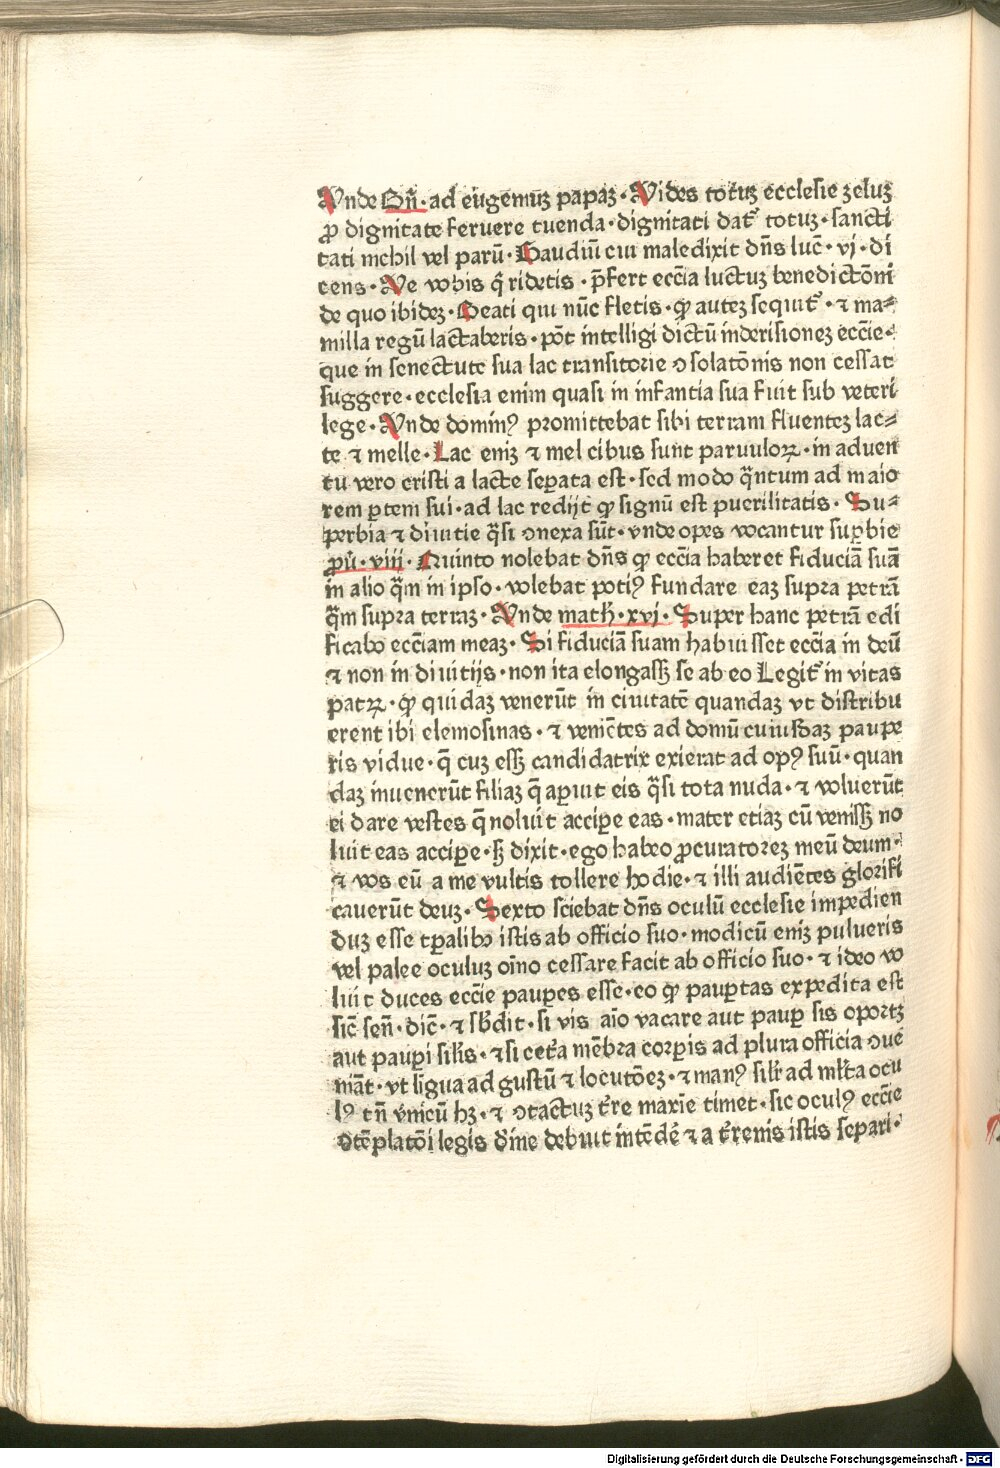 Unde Bn̄·ad eugeniuꝫ papaꝫ·Uides totuꝫ ecclesie zeluꝫ
ꝓ dignitate feruere tuenda·dignitati dat᷑ totuꝫ·sancti
tati nichil vel parū·Gaudiū cui maledixit dn̄s luc̄·vj·di
cens·Ve vobis q̄ ridetis·p̄fert ecc̄ia luctuꝫ benedictōni
de quo ibideꝫ·Beati qui nūc fletis·ꝙ auteꝫ sequit᷑·⁊ ma⸗
milla regū lactaberis·pōt intelligi dictū inderisioneꝫ ecc̄ie·
que in senectute sua lac transitorie ꝯsolatōnis non cessat
suggere·ecclesia enim quasi in infantia sua fuit sub veteri
lege·Unde dominꝰ promittebat sibi terram fluenteꝫ lac⸗
te ⁊ melle·Lac eniꝫ ⁊ mel cibus sunt paruuloꝝ·in aduen
tu vero cristi a lacte seꝑata est·sed modo q̄ntum ad maio
rem ꝑtem sui·ad lac redijt ꝙ signū est puerilitatis·Su⸗
perbia ⁊ diuitie q̄si ꝯnexa sūt·vnde opes vocantur suꝑbie
ꝓū·viij·Quinto nolebat dn̄s ꝙ ecc̄ia haberet fiduciā suā
in alio q̄m in ipso·volebat potiꝰ fundare eaꝫ supra petrā
q̄m supra terraꝫ·Unde math̄·xvj·Super hanc petrā edi
ficabo ecc̄iam meaꝫ·Si fiduciā suam habuisset ecc̄ia in deū
⁊ non in diuitijs·non ita elongassꝫ se ab eo Legit᷑ in vitas
patꝝ·ꝙ quidaꝫ venerūt in ciuitatē quandaꝫ vt distribu
erent ibi elemosinas·⁊ veniētes ad domū cuiusdaꝫ paupe
ris vidue·q̄ cuꝫ essꝫ candidatrix exierat ad opꝰ suū·quan
daꝫ inuenerūt filiaꝫ q̄ aꝑuit eis q̄si tota nuda·⁊ voluerūt
ei dare vestes q̄ noluit acciꝑe eas·mater etiaꝫ cū venissꝫ no
luit eas acciꝑe·sꝫ dixit·ego habeo ꝓcuratoreꝫ meū deum·
⁊ vos eū a me vultis tollere hodie·⁊ illi audiētes glorifi
cauerūt deuꝫ·Sexto sciebat dn̄s oculū ecclesie impedien
duꝫ esse tꝑalibꝫ istis ab officio suo·modicū eniꝫ pulueris
vel palee oculuꝫ oīno cessare facit ab officio suo·⁊ ideo vo
luit duces ecc̄ie pauꝑes esse·eo ꝙ pauꝑtas expedita est
sic̄ sen̄·dic̄·⁊ sb̄dit·si vis aīo vacare aut pauꝑ sis oportꝫ
aut pauꝑi sil̄is·⁊ si cet᷑a mēbra corꝑis ad plura officia ꝯue
niāt·vt ligua ad gustū ⁊ locutōeꝫ·⁊ manꝰ sil̄r ad ml̄ta ocu
lꝰ tn̄ vnicū hꝫ·⁊ ꝯtactuꝫ t᷑re maxīe timet·sic oculꝰ ecc̄ie
ꝯtēplatōi legis diuīe debuit intēdē ⁊ a t᷑renis istis separi·
Digitalisierung gefördert durch die Deutsche Forschungsgemeinschaft · DFG